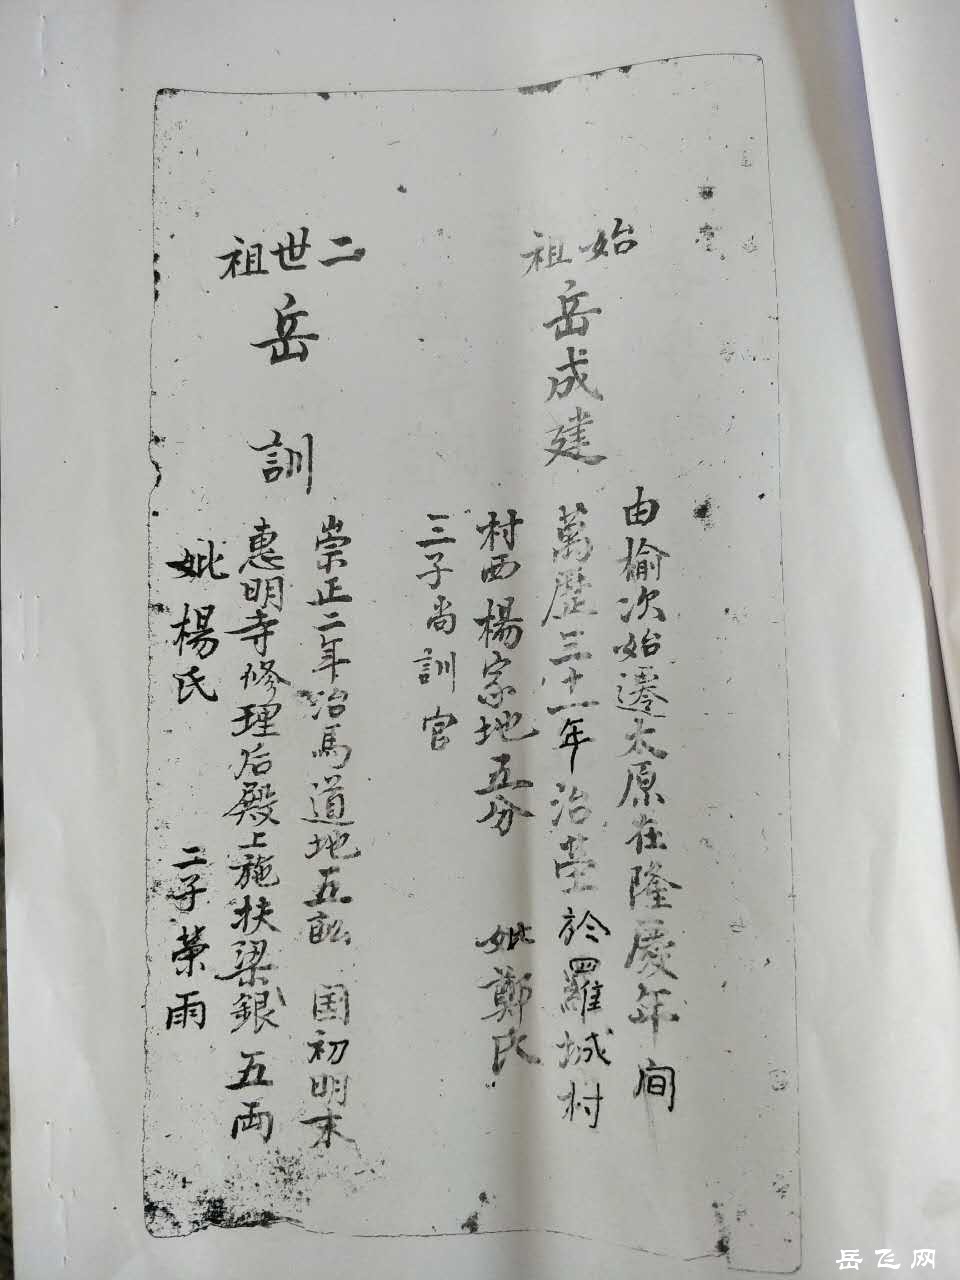 始祖
岳成建
由榆次始遷太原在隆慶年间
萬歷三十一年治茔於羅城村
村西楊家地五分 妣鄭氏
三子尚訓官
二世祖
岳訓
崇正二年治馬道地五畝 国初明末
惠明寺修理后殿上施扶梁銀五両
妣楊氏 二子荣雨
岳飞网